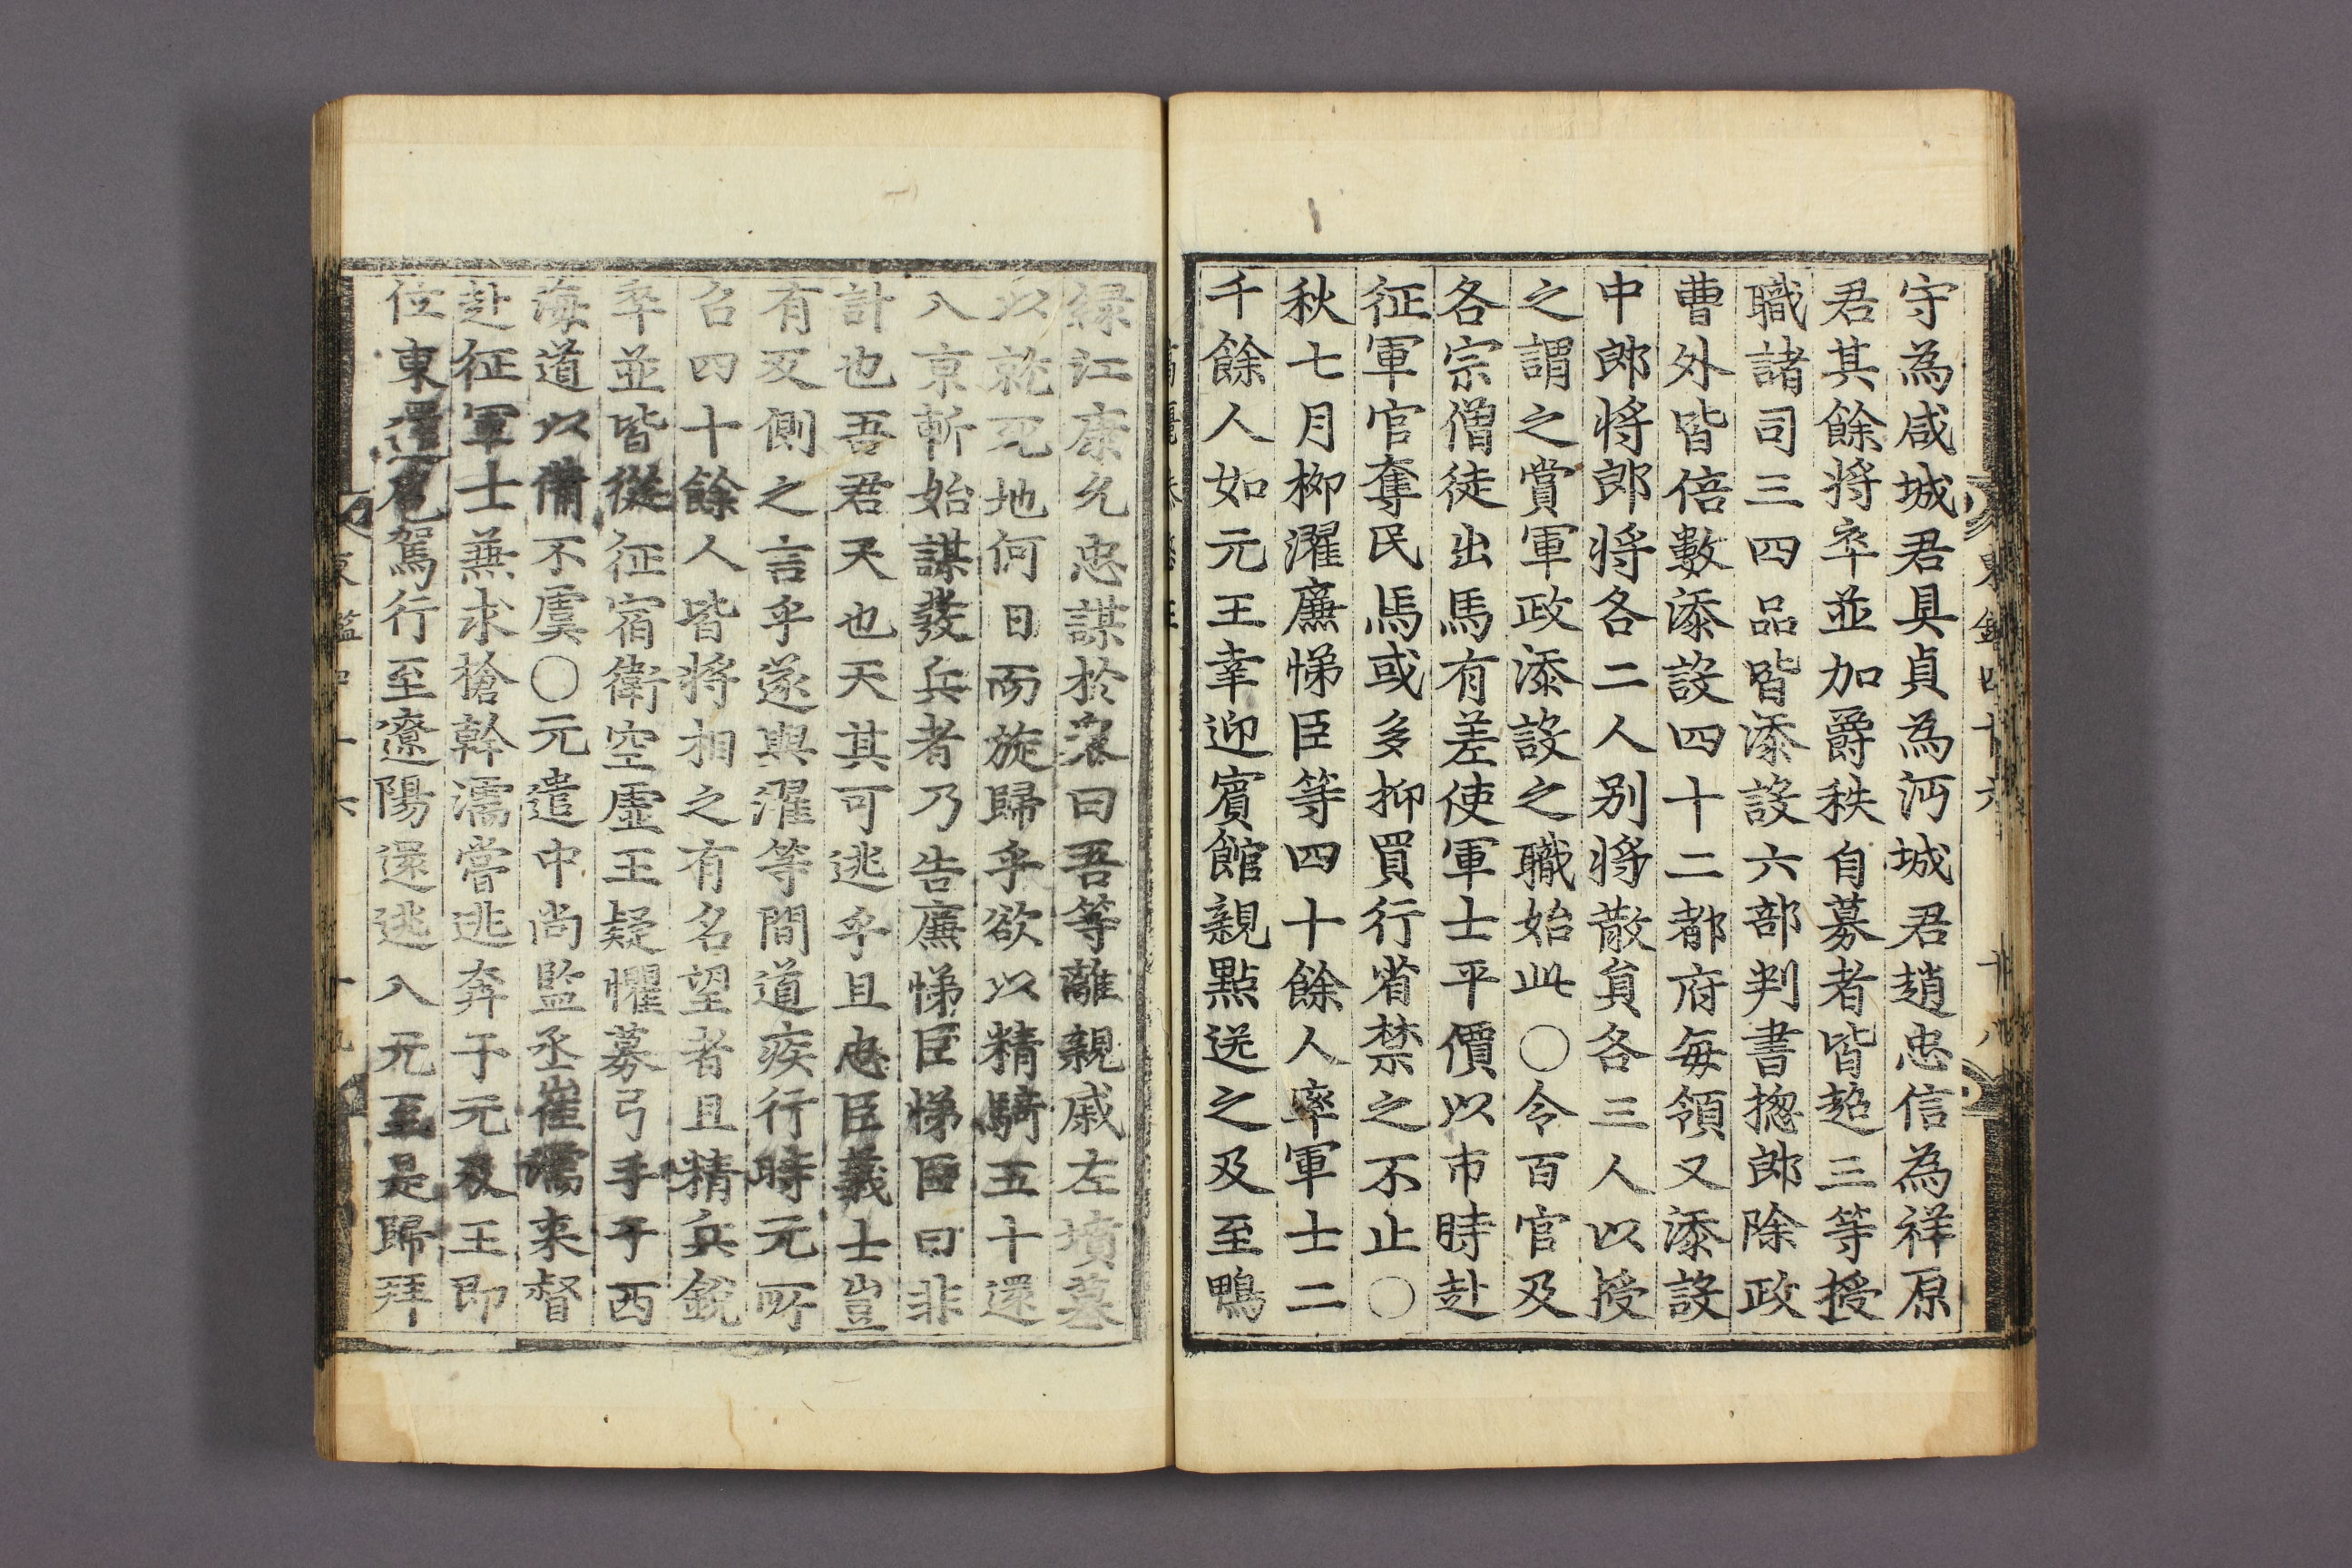 守為咸城君具貞為沔城君趙忠信為祥原
君其餘将卒並加爵秩自募者皆超三等授
職諸司三四品皆添設六部判書摠郎除政
曹外皆倍數添設四十二都府每領又添設
中郎将郎将各二人别将散貟各三人以授
之謂之賞軍政添設之職始此○令百官及
各宗僧徒出馬有差使軍士平價以市時赴
征軍官奪民馬或多抑買行省禁之不止○
秋七月柳濯廉悌臣等四十餘人率軍士二
千餘人如元王幸迎賓館親點送之及至鴨
緑江康允忠謀於衆曰吾等離親戚左墳墓
以就死地何日而旋歸乎欲以精騎五十還
入京斬始謀發兵者乃告廉悌臣悌臣曰非
計也吾君天也天其可逃乎且忠臣義士豈
有反側之言乎遂與濯等間道疾行時元所
召四十餘人皆将相之有名望者且精兵銳
卒並皆從征宿衛空虛王疑懼募弓手于西
海道以備不虞○元遣中尚監丞崔濡来督
赴征軍士兼求槍幹濡嘗逃奔于元及王即
位東還扈駕行至遼陽還逃入元至是歸拜
東鑑四十六
十八